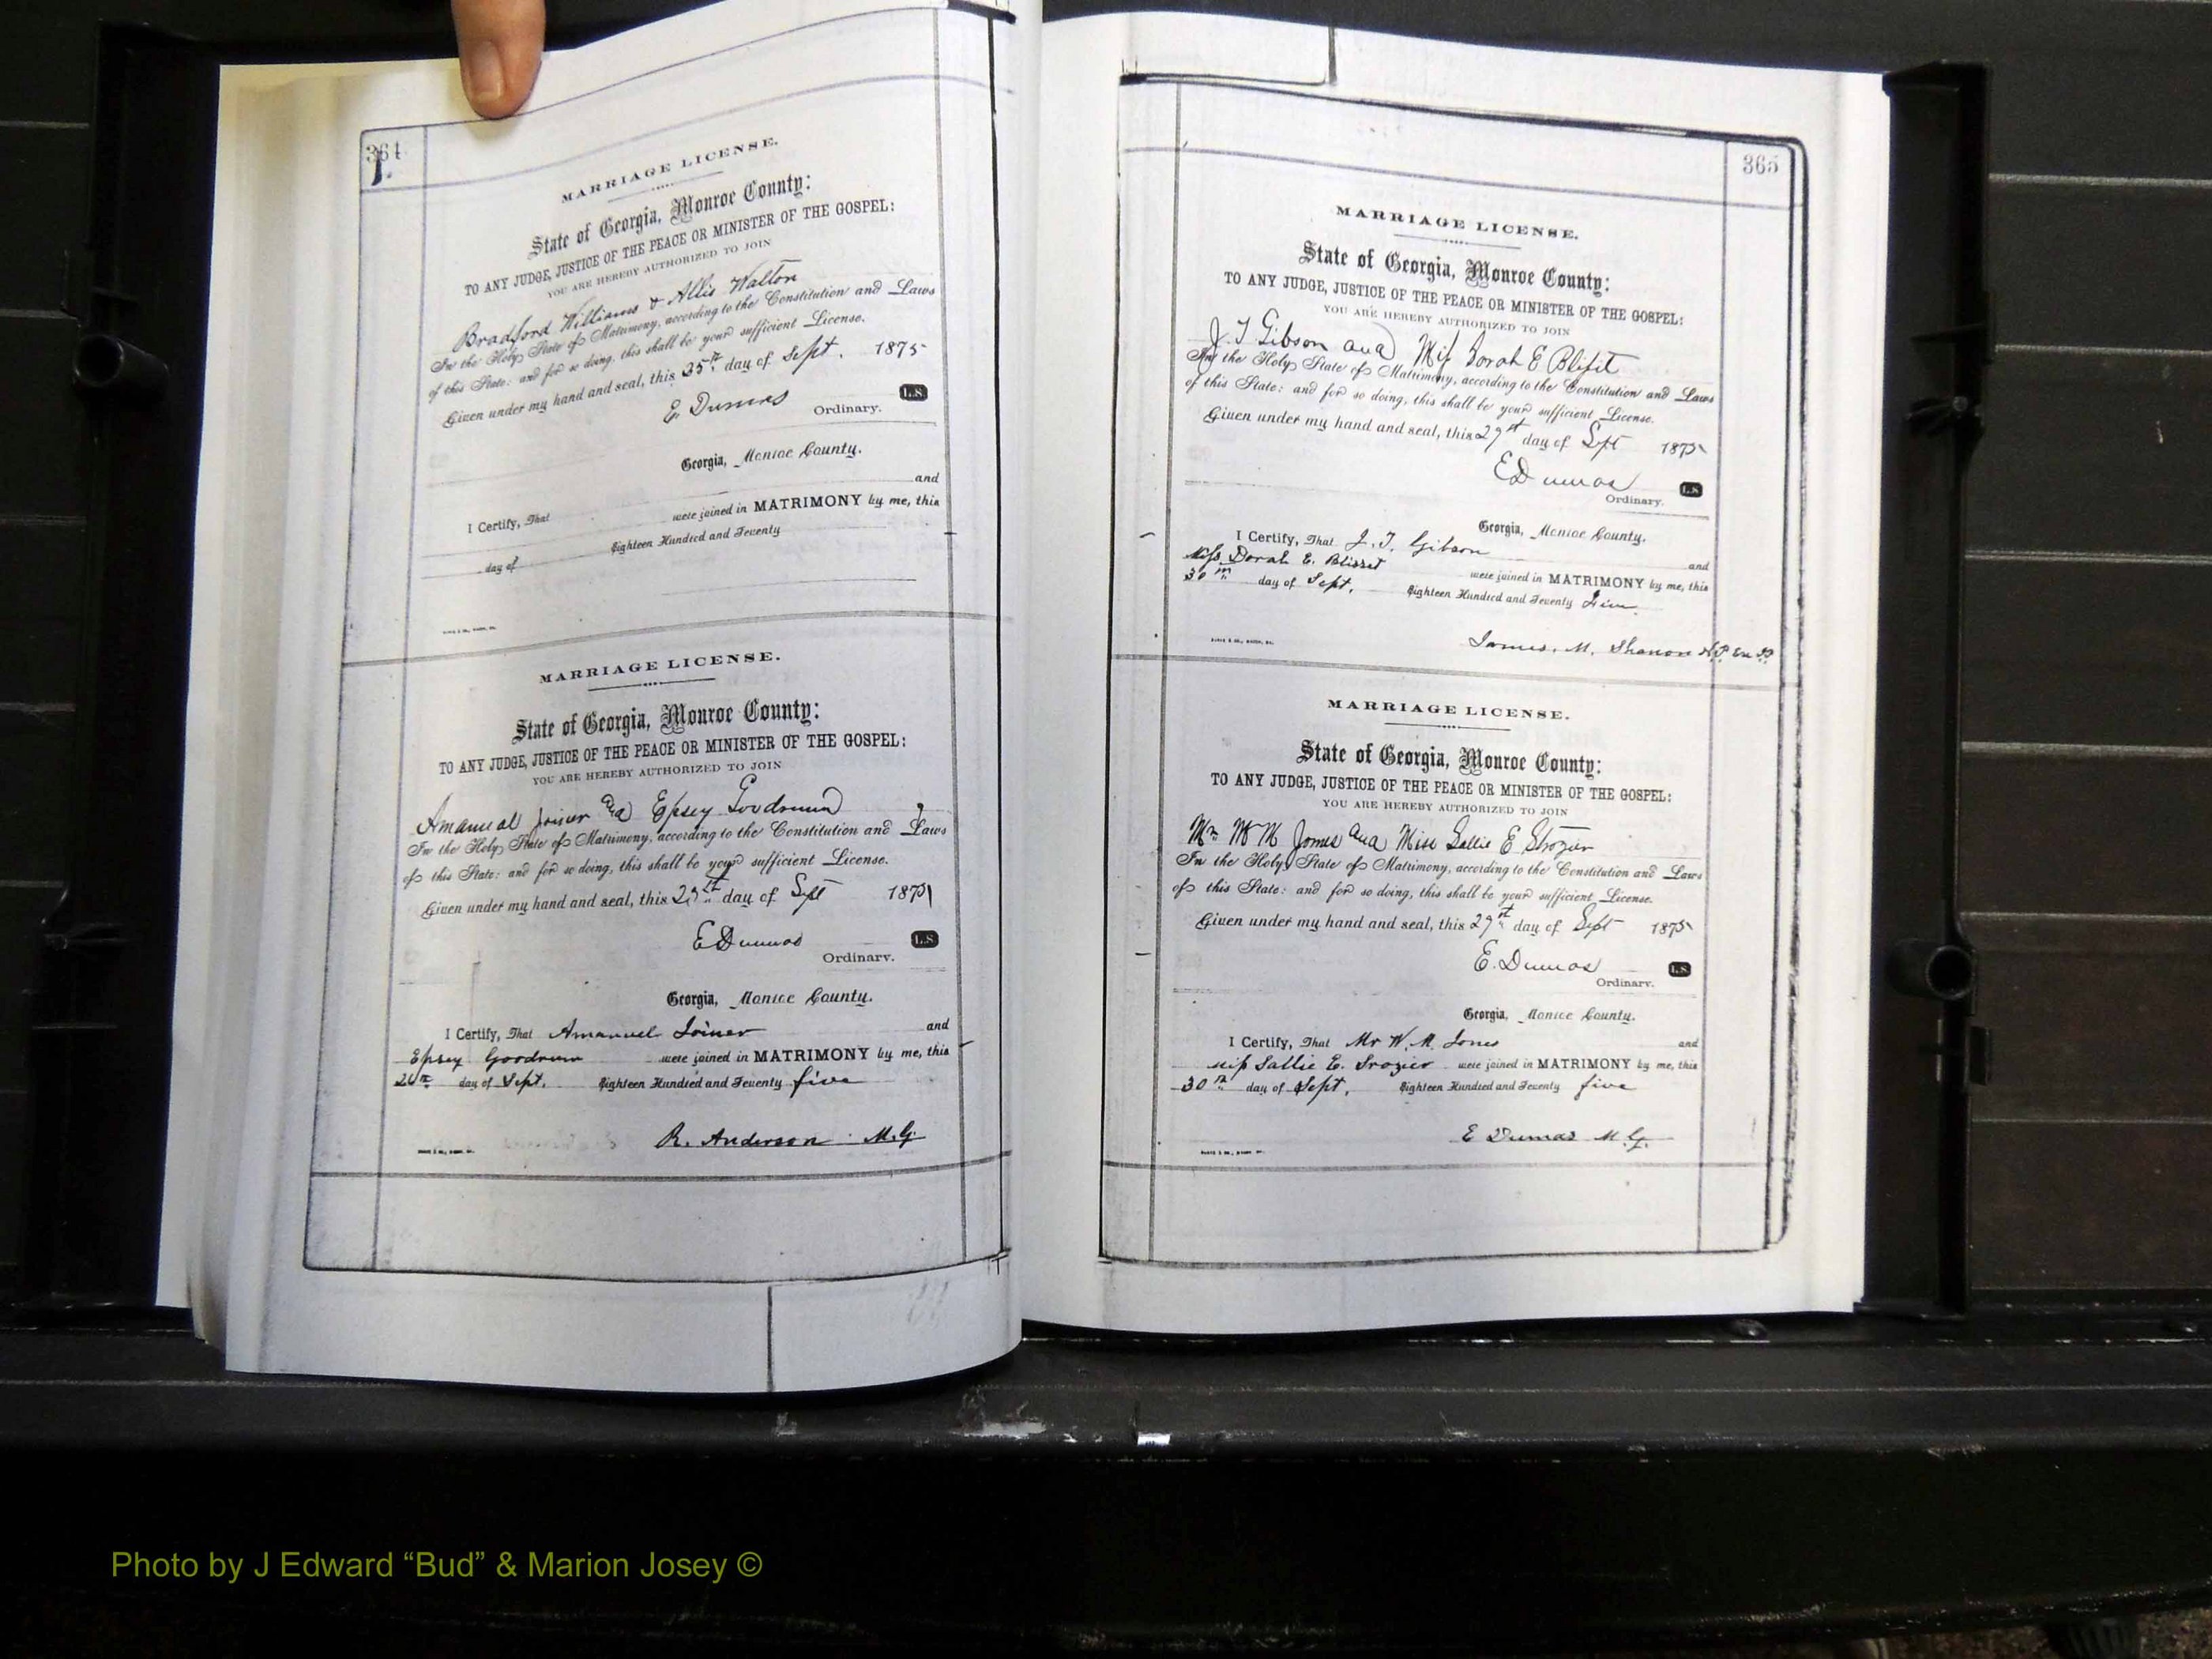 364
MARRIAGE LICENSE.
State of Georgia, Monroe County:
TO ANY JUDGE, JUSTICE OF THE PEACE OR MINISTER OF THE GOSPEL:
YOU ARE HEREBY AUTHORIZED TO JOIN
Bradford Williams & Allis Walton
In the Holy State of Matrimony, according to the Constitution and Laws
of this State: and for so doing, this shall be your sufficient License.
Given under my hand and seal, this 25th day of Sept. 1875
E Dumas L.S.
Ordinary.
Georgia, Monroe County.
and
I Certify, That were joined in MATRIMONY by me, this
day of Eighteen Hundred and Seventy
MARRIAGE LICENSE.
State of Georgia, Monroe County:
TO ANY JUDGE, JUSTICE OF THE PEACE OR MINISTER OF THE GOSPEL:
YOU ARE HEREBY AUTHORIZED TO JOIN
Amanuel Joiner and Epsey Goodrum
In the Holy State of Matrimony, according to the Constitution and Laws
of this State: and for so doing, this shall be your sufficient License.
Given under my hand and seal, this day of Sept 1875
E Dumas L.S.
Ordinary.
Georgia, Monroe County.
I Certify, That Amanuel Joiner and
Epsey Goodrum were joined in MATRIMONY by me, this
26th day of Sept. Eighteen Hundred and Seventy five
R. Anderson M.G.
365
MARRIAGE LICENSE.
State of Georgia, Monroe County:
TO ANY JUDGE, JUSTICE OF THE PEACE OR MINISTER OF THE GOSPEL:
YOU ARE HEREBY AUTHORIZED TO JOIN
J. T Gibson and Miss Dorah E Blisit
In the Holy State of Matrimony, according to the Constitution and Laws
of this State: and for so doing, this shall be your sufficient License.
Given under my hand and seal, this 29th day of Sept 1875
E Dumas L.S.
Ordinary.
Georgia, Monroe County.
I Certify, That J. T. Gibson and
Miss Dorah E. Blisset were joined in MATRIMONY by me, this
30th day of Sept. Eighteen Hundred and Seventy Five
James. M. Shanon N.P. Ex J.P.
MARRIAGE LICENSE.
State of Georgia, Monroe County:
TO ANY JUDGE, JUSTICE OF THE PEACE OR MINISTER OF THE GOSPEL:
YOU ARE HEREBY AUTHORIZED TO JOIN
Mr W M Jones and Miss Sallie E Strozier
In the Holy State of Matrimony, according to the Constitution and Laws
of this State: and for so doing, this shall be your sufficient License.
Given under my hand and seal, this 29th day of Sept 1875
E. Dumas L.S.
Ordinary.
Georgia, Monroe County.
I Certify, That Mr W. M. Jones and
Miss Sallie E. Srozier were joined in MATRIMONY by me, this
30th day of Sept. Eighteen Hundred and Seventy five
E Dumas M.G.
Photo by J Edward “Bud” & Marion Josey ©